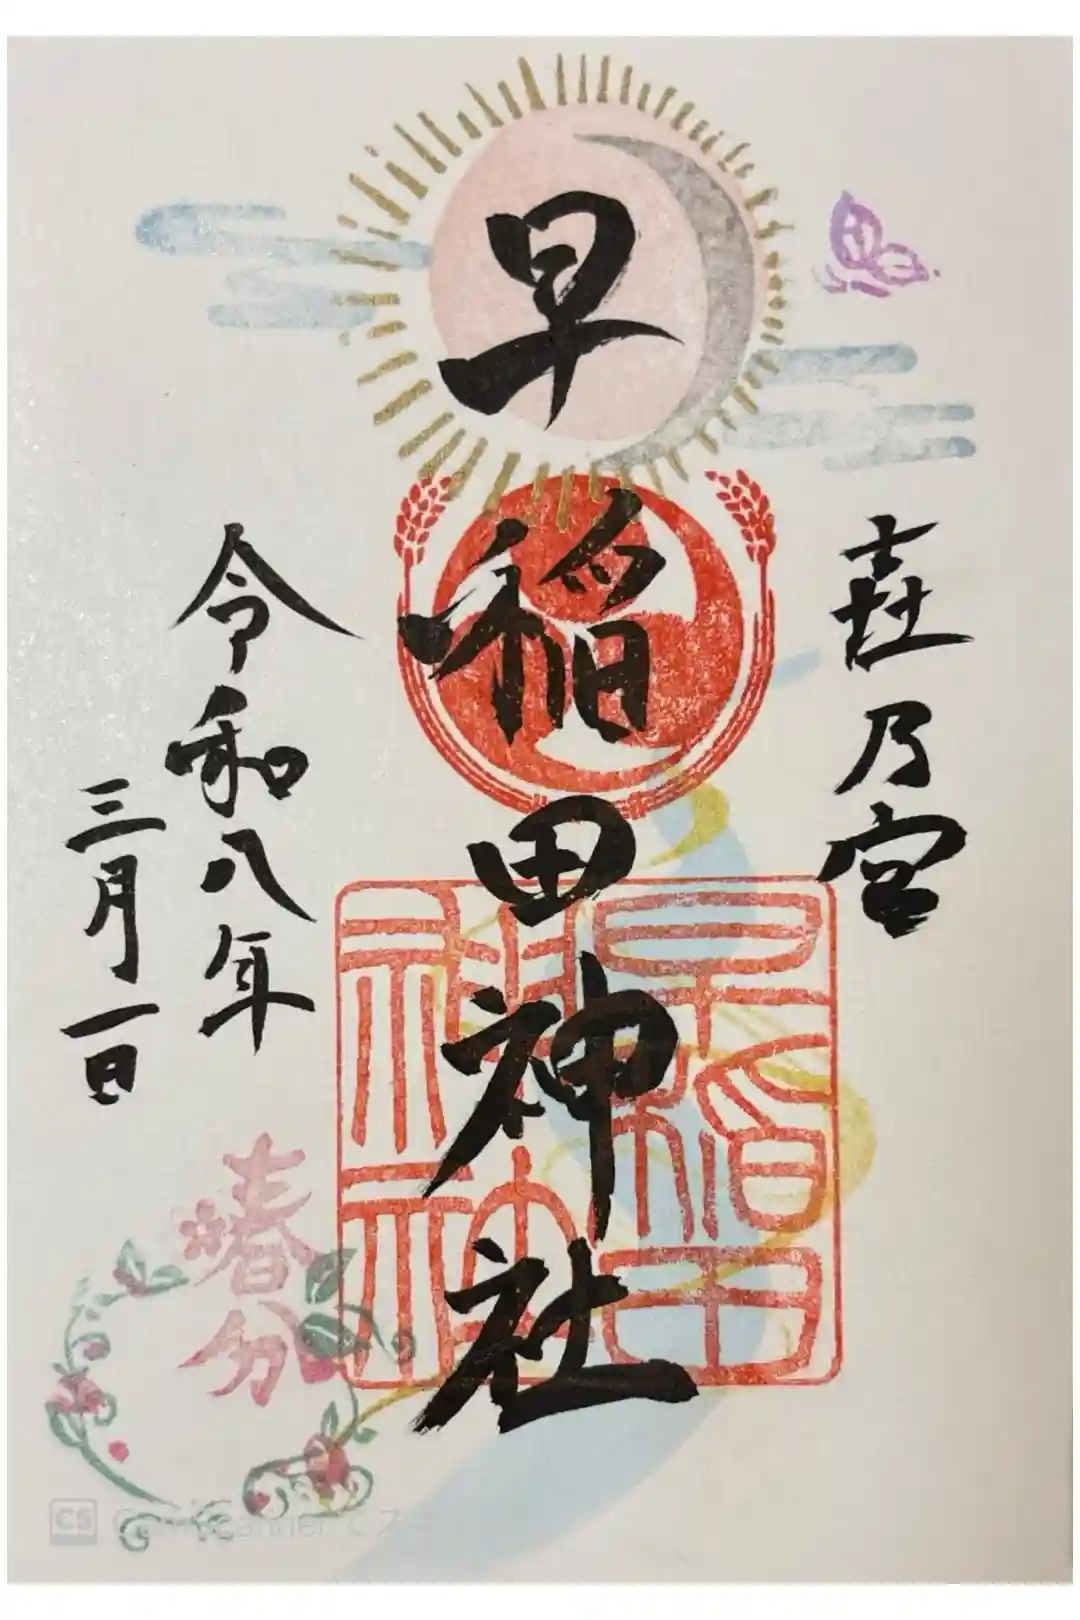 㐂乃宮
早稲田神社
早稲田
神社
令和八年
三月一日
春分
CS CamScanner でスキ